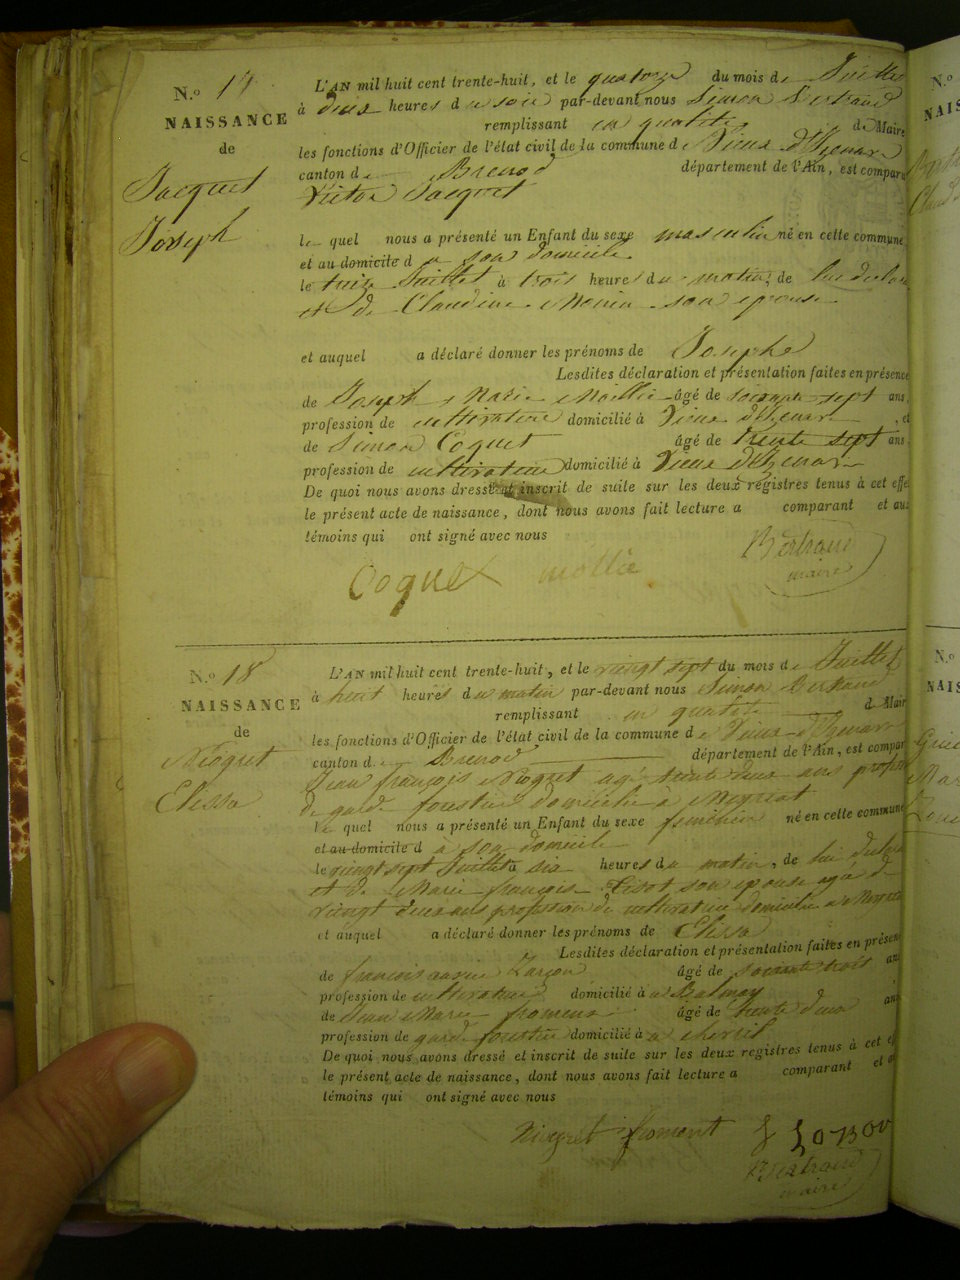 N.° 17
NAISSANCE
de
Jacquet
Joseph
L'AN mil huit cent trente-huit, et le quatorze du mois de Juillet
à deux heures du soir par-devant nous Simon Bertrand
remplissant en qualité de Maire
les fonctions d'Officier de l'état civil de la commune de Vieux d'Izenave
canton de Brenod département de l'Ain, est comparu
Victor Jacquet
le quel nous a présenté un Enfant du sexe masculin né en cette commune
et au domicile d a son domicile
le treize Juillet à trois heures du matin, de lui déclarant
et de Claudine Monin son epouse
et auquel a déclaré donner les prénoms de Josephe
Lesdites déclaration et présentation faites en présence
de Joseph Marie Mollie âgé de soixante sept ans,
profession de cultivateur domicilié à Vieux d'Izenave, et
de Simon Coquet âgé de trente sept ans
profession de cultivateur domicilié à Vieux d'Izenave
De quoi nous avons dressé et inscrit de suite sur les deux registres tenus à cet effe
le présent acte de naissance, dont nous avons fait lecture a comparant et aux
témoins qui ont signé avec nous
Bertrand
maire
Coquet mollie
N.° 18
NAISSANCE
de
Niogret
Elissa
L'AN mil huit cent trente-huit, et le vingt sept du mois de Juillet
à huit heures du matin par-devant nous Simon Bertrand
remplissant en qualité de Mair
les fonctions d'Officier de l'état civil de la commune de Vieux d'Izenave
canton de Brenod département de l'Ain, est compar
Jean françois Niogret agé trente deux ans profession
de garde forestier domicilié à Meyriat
le quel nous a présenté un Enfant du sexe feminin né en cette commune
et au domicile d à son domicile
le vingt sept Juillet à six heures du matin, de lui declarant
et de Marie françoise son epouse agée de
vingt deux ans profession de cultivatrice domiciliée a Meyriat
et auquel a déclaré donner les prénoms de Elissa
Lesdites déclaration et présentation faites en présen
de françois Zarzon âgé de soixante trois ans
profession de cultivateur domicilié à a Balmay
de Jean Marie froment âgé de trente deux ans
profession de garde forestier domicilié à a
De quoi nous avons dressé et inscrit de suite sur les deux registres tenus à cet ef
le présent acte de naissance, dont nous avons fait lecture a comparant et a
témoins qui ont signé avec nous
Niogret froment
Bertrand
maire
N.°
NAIS
N.°
NAIS